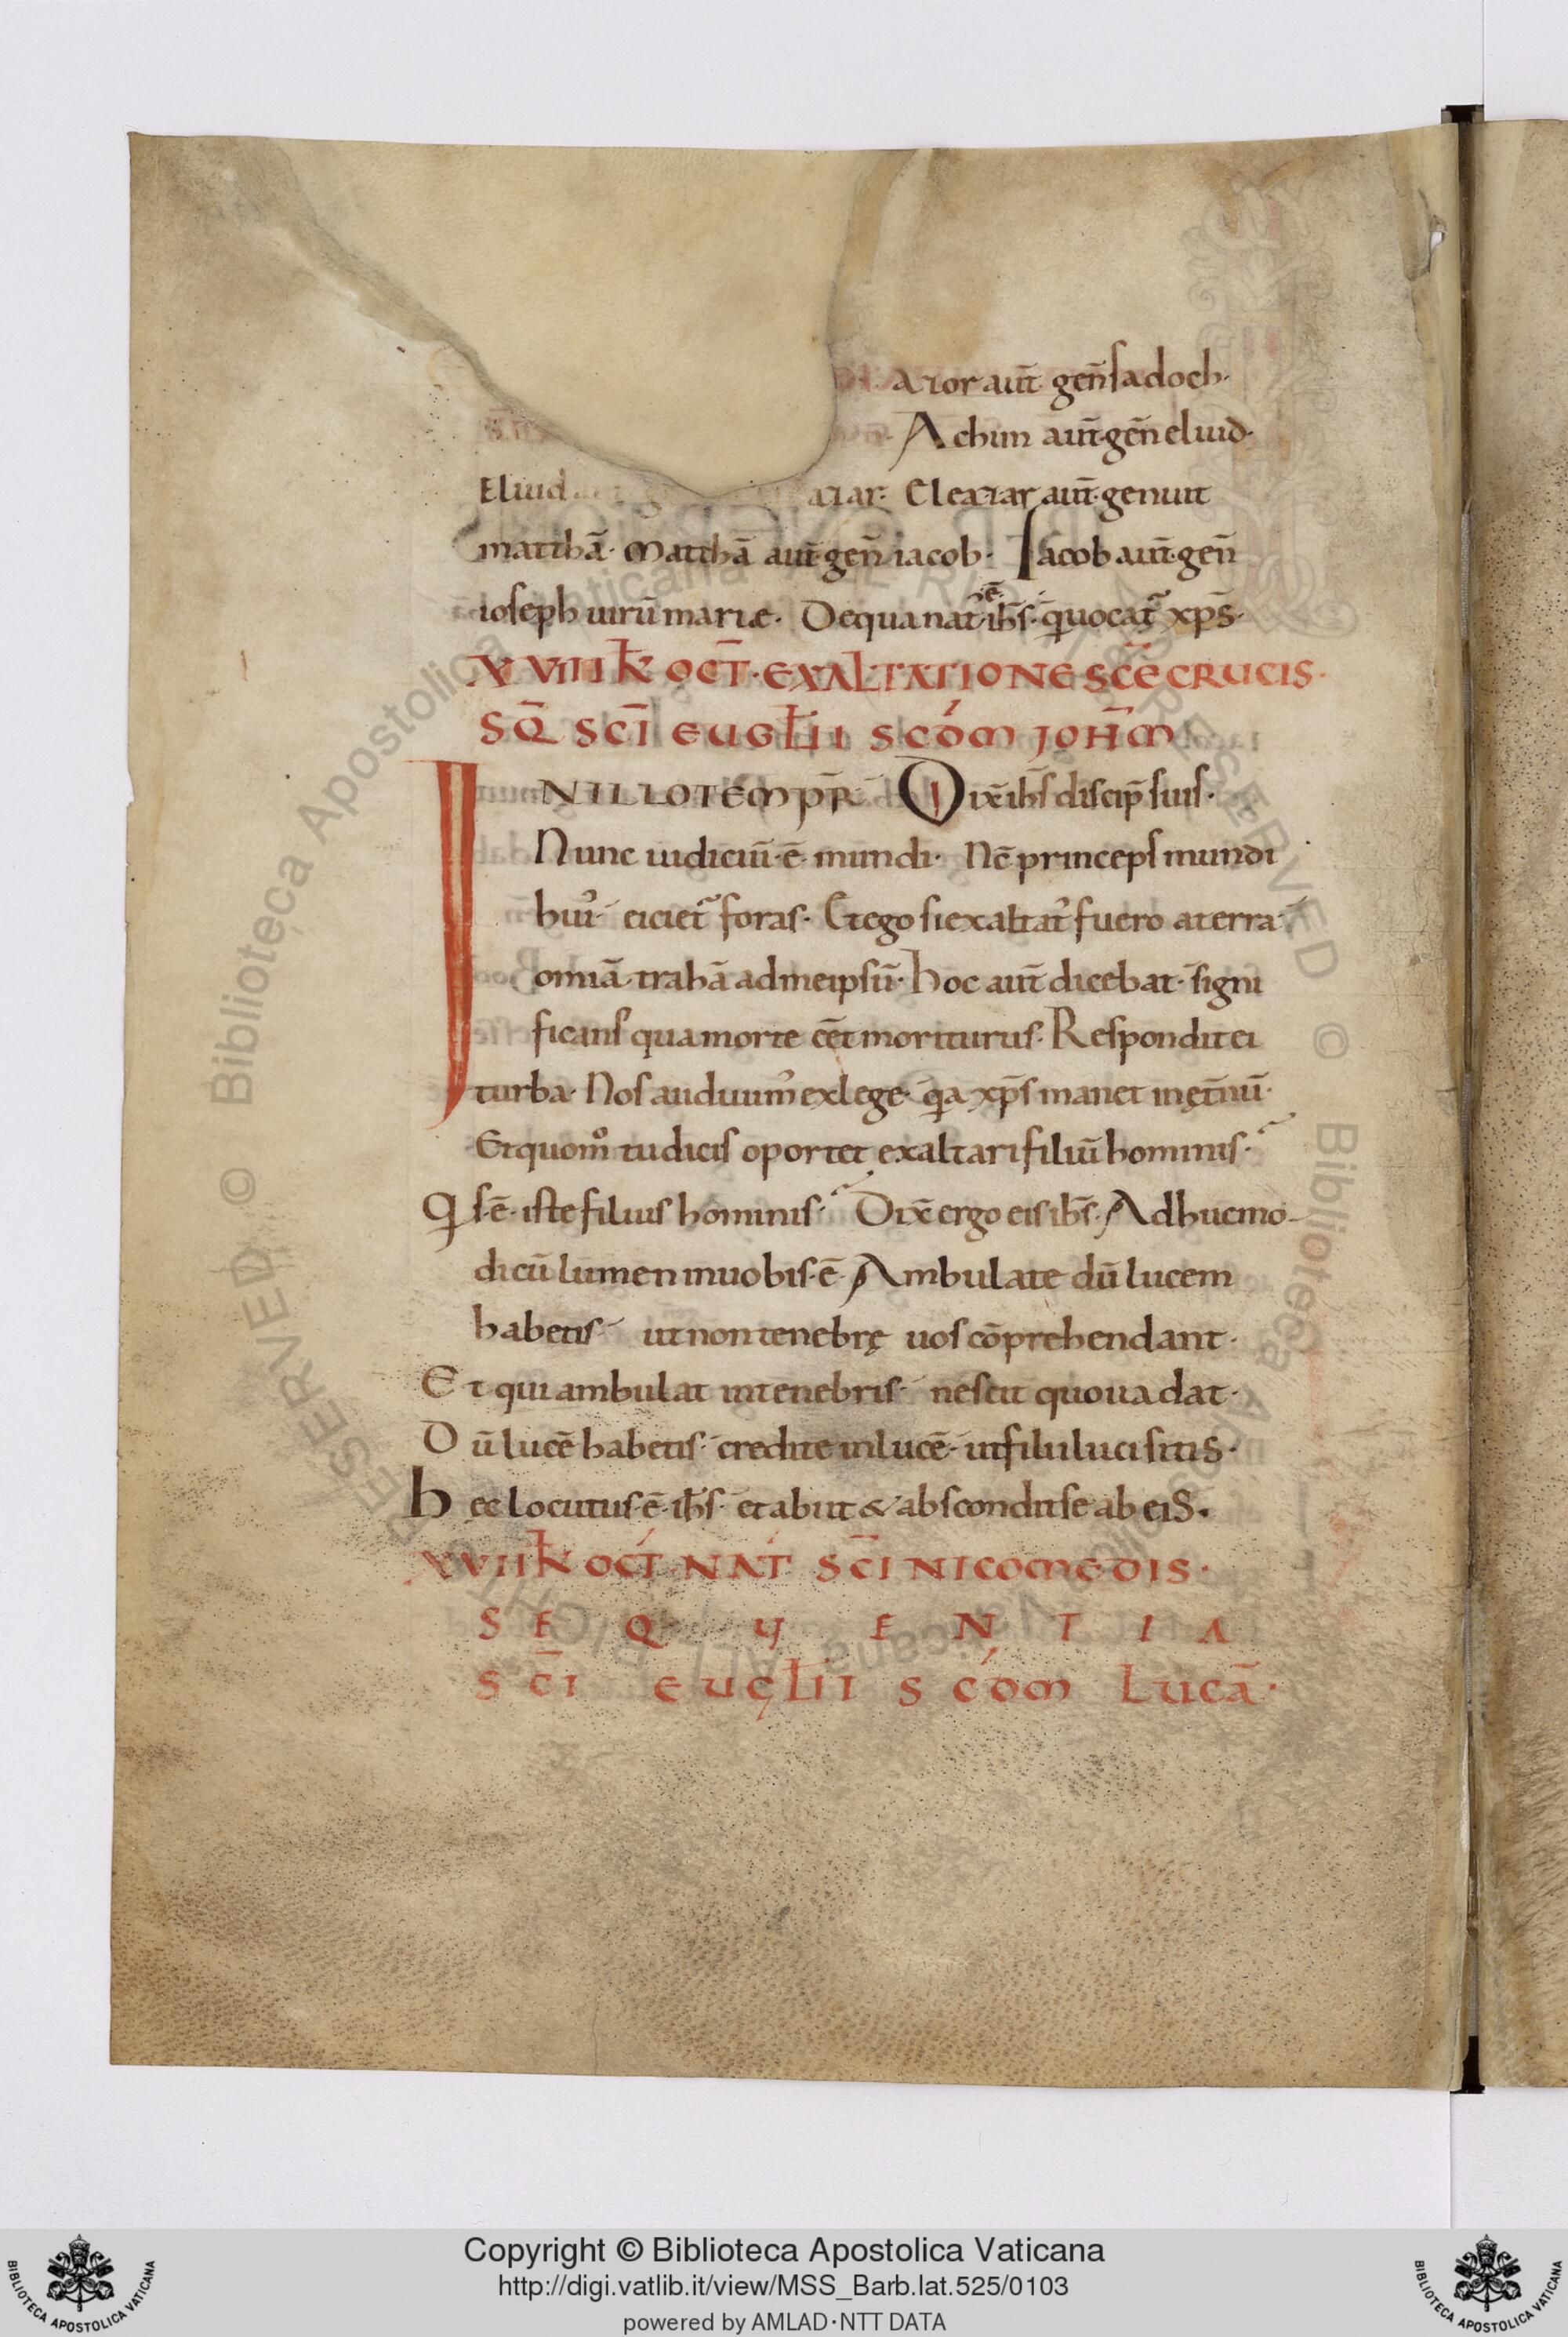 azor aut̄ geñ sadoch·
Achim aut̄· gen̄ eliud·
Eliud azar· Eleazar aut̄· genuit
matthā· Matthā aut̄· gen̄ iacob· Iacob aut̄· gen̄
ioseph uirū mariæ· De qua nat᷒ ē ih̄s· q̄ uocat᷑ xp̄s·
XVIII K̄ OCT̄· EXALTATIONE SC̄E CRUCIS·
SQ̄ SC̄I EUGL̄II SCD́M JOH̄M
IN ILLO TEMPR̄ Dix̄ ih̄s discip̄ suis·
Nunc iudiciū· ē· mundi· Nc̄ princeps mundi
hui᷒ eiciet᷑ foras· Et ego si exaltat᷒ fuero a terra
omīa trahā ad me ipsū· Hoc aut̄ dicebat· signi
ficans qua morte eēt moriturus· Respondit ei
turba· Nos audiuim᷒ ex lege· q̄a xp̄s manet in ęt̄nū·
Et quom̊ tu dicis oportet exaltari filiū hominis·
Q̄s· ē· iste filius hominis· Dix̄ ergo eis ih̄s· Adhuc mo-
dicū lumen in uobis· ē· Ambulate dū lucem
habetis· ut non tenebrę uos cōprehendant·
Et qui ambulat in tenebris· nescit quo uadat·
Dū lucē habetis· credite in lucē· ut filii luci sitis·
Hec locutus· ē· ih̄s· et abiit & abscondit se ab eis.
XVII K̄ OCT́ NAT́ SC̄I NICOMEDIS·
S E Q U E N T I A
SC̄I EUGL̄II SCD́M LUCĀ·
© Biblioteca Apostolica Vaticana ALL RIGHTS RESERVED © Biblioteca Apostolica Vaticana ALL RIGHTS RESERVED
Copyright © Biblioteca Apostolica Vaticana
http://digi.vatlib.it/view/MSS_Barb.lat.525/0103
powered by AMLAD·NTT DATA
BIBLIOTECA APOSTOLICA VATICANA
BIBLIOTECA APOSTOLICA VATICANA